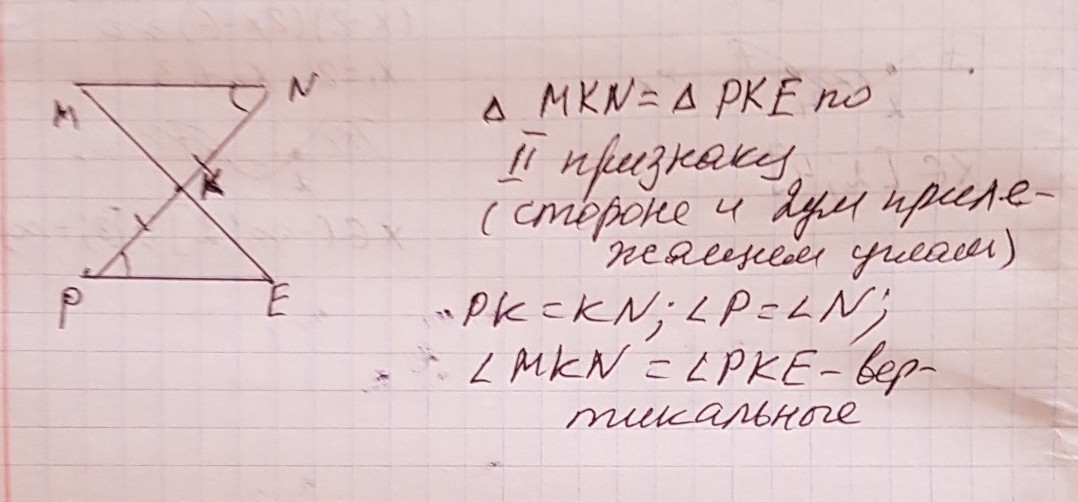 M
N
K
P
E
Δ MKN = Δ PKE по
II признаку
(стороне и 2ум приле-
жащем углам)
PK = KN; ∠P = ∠N;
∠MKN = ∠PKE – вер-
тикальные